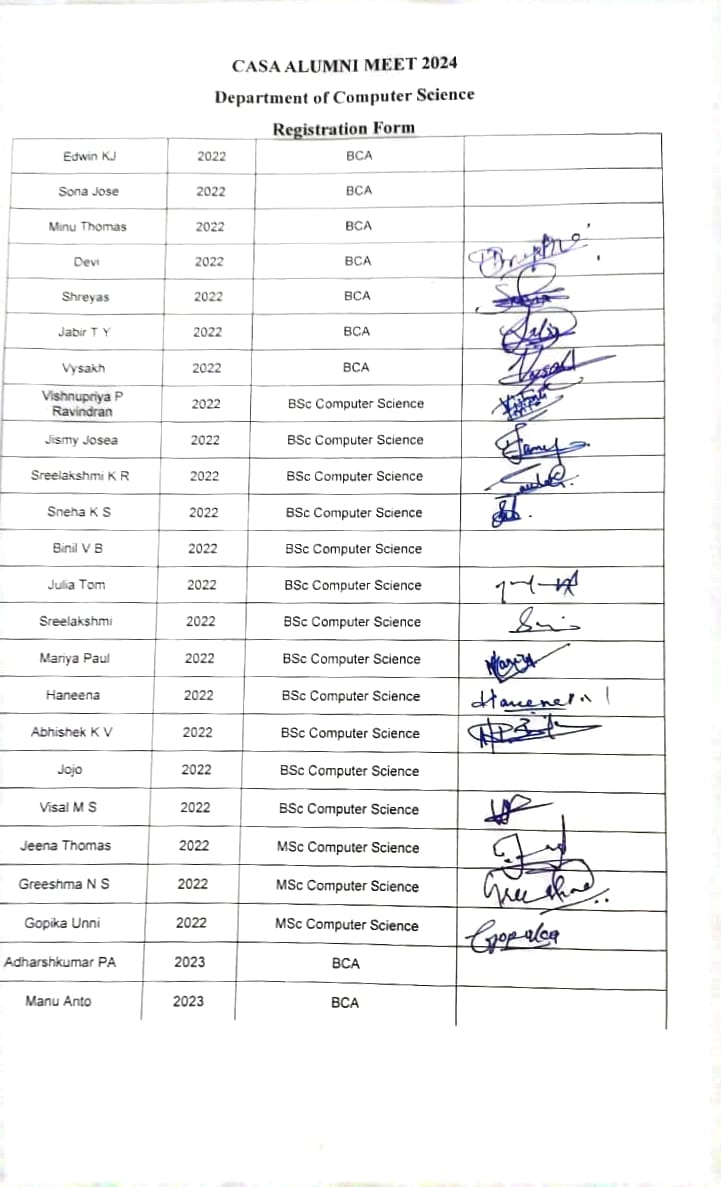 CASA ALUMNI MEET 2024
Department of Computer Science
Registration Form
Edwin KJ 2022 BCA
Sona Jose 2022 BCA
Minu Thomas 2022 BCA
Devi 2022 BCA
Shreyas 2022 BCA
Jabir T Y 2022 BCA
Vysakh 2022 BCA
Vishnupriya P
Ravindran 2022 BSc Computer Science
Jismy Josea 2022 BSc Computer Science
Sreelakshmi K R 2022 BSc Computer Science
Sneha K S 2022 BSc Computer Science
Binil V B 2022 BSc Computer Science
Julia Tom 2022 BSc Computer Science
Sreelakshmi 2022 BSc Computer Science
Mariya Paul 2022 BSc Computer Science
Haneena 2022 BSc Computer Science
Abhishek K V 2022 BSc Computer Science
Jojo 2022 BSc Computer Science
Visal M S 2022 BSc Computer Science
Jeena Thomas 2022 MSc Computer Science
Greeshma N S 2022 MSc Computer Science
Gopika Unni 2022 MSc Computer Science
Adharshkumar PA 2023 BCA
Manu Anto 2023 BCA